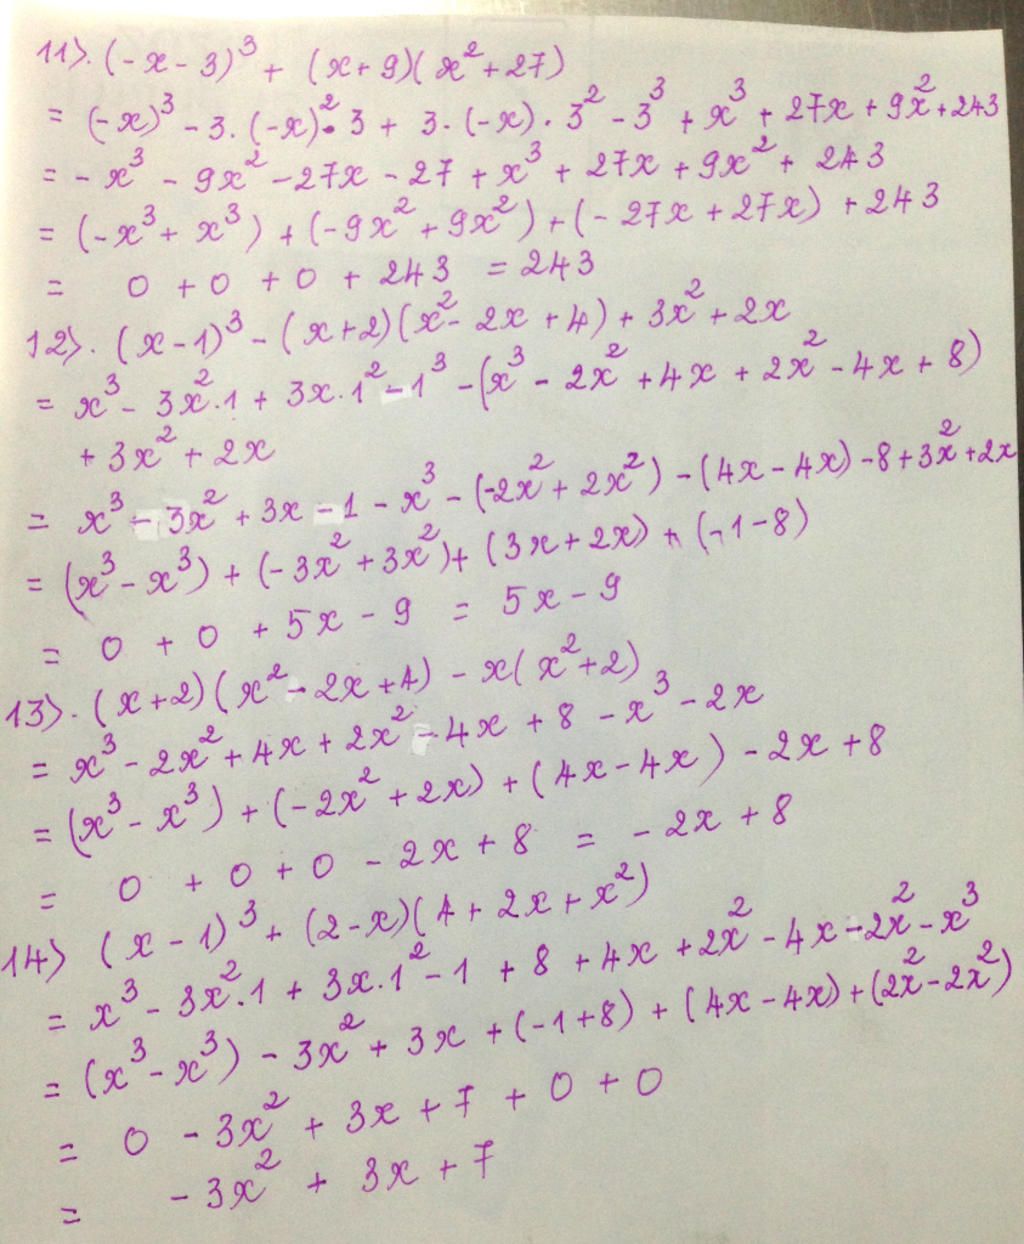 11). (-x - 3)³ + (x + 9)(x² + 27)
= (-x)³ - 3. (-x)². 3 + 3. (-x). 3² - 3³ + x³ + 27x + 9x² + 243
= - x³ - 9x² - 27x - 27 + x³ + 27x + 9x² + 243
= (-x³ + x³) + (-9x² + 9x²) + (- 27x + 27x) + 243
= 0 + 0 + 0 + 243 = 243
12). (x - 1)³ - (x + 2)(x² - 2x + 4) + 3x² + 2x
= x³ - 3x².1 + 3x.1² - 1³ - (x³ - 2x² + 4x + 2x² - 4x + 8)
+ 3x² + 2x
= x³ - 3x² + 3x - 1 - x³ - (-2x² + 2x²) - (4x - 4x) - 8 + 3x² + 2x
= (x³ - x³) + (-3x² + 3x²) + (3x + 2x) + (-1 - 8)
= 0 + 0 + 5x - 9 = 5x - 9
13). (x + 2)(x² - 2x + 4) - x(x² + 2)
= x³ - 2x² + 4x + 2x² - 4x + 8 - x³ - 2x
= (x³ - x³) + (-2x² + 2x) + (4x - 4x) - 2x + 8
= 0 + 0 + 0 - 2x + 8 = - 2x + 8
14) (x - 1)³ + (2 - x)(4 + 2x + x²)
= x³ - 3x².1 + 3x.1² - 1 + 8 + 4x + 2x² - 4x - 2x² - x³
= (x³ - x³) - 3x² + 3x + (-1 + 8) + (4x - 4x) + (2x² - 2x²)
= 0 - 3x² + 3x + 7 + 0 + 0
= - 3x² + 3x + 7